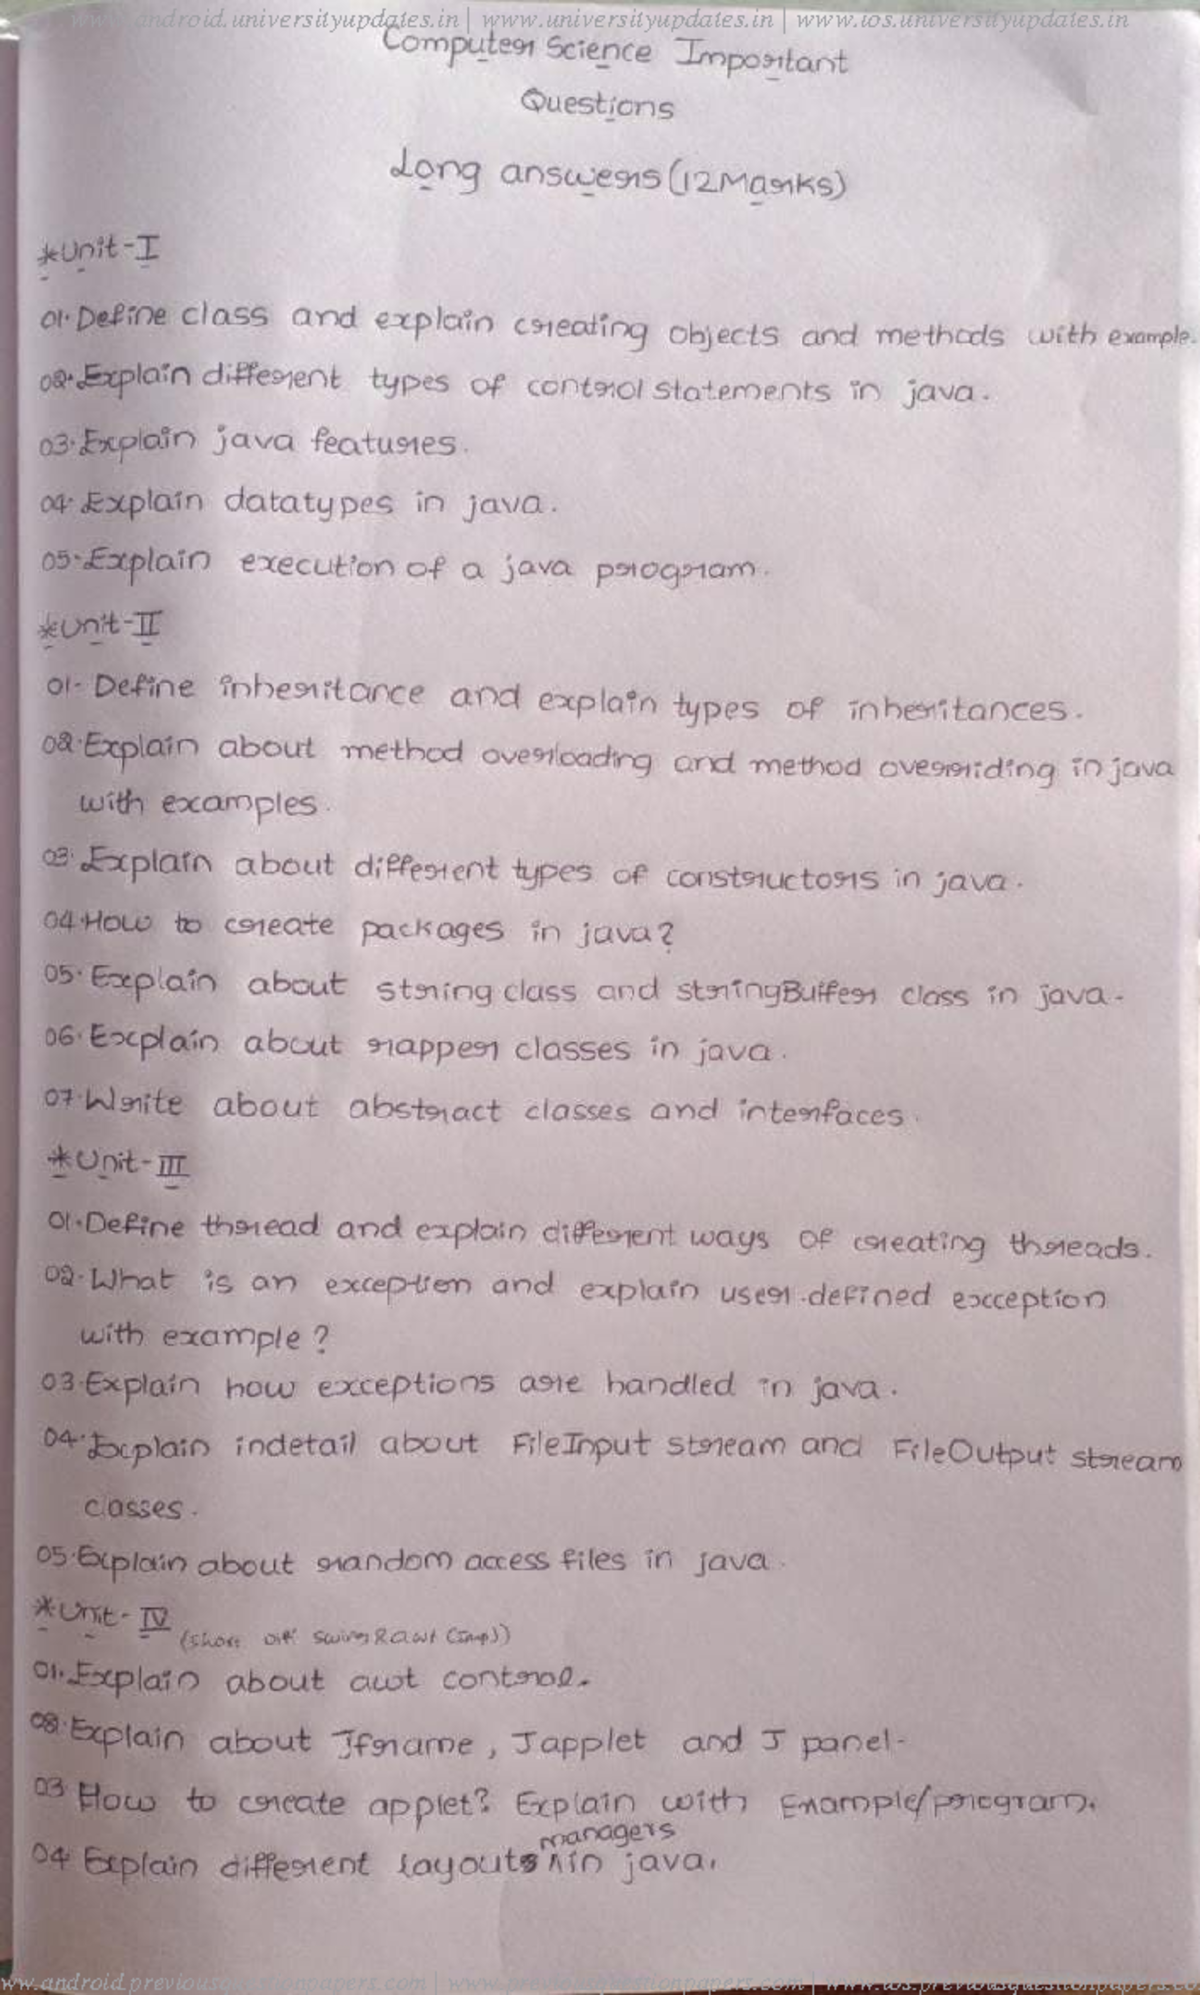 www.android.universityupdates.in | www.universityupdates.in | www.ios.universityupdates.in
Computer Science Important
Questions
Long answers (12 Marks)
*Unit-I
01. Define class and explain creating objects and methods with example.
02. Explain different types of control statements in java.
03. Explain java features.
04. Explain datatypes in java.
05. Explain execution of a java program.
*Unit-II
01. Define inheritance and explain types of inheritances.
02. Explain about method overloading and method overriding in java
with examples.
03. Explain about different types of constructors in java.
04. How to create packages in java?
05. Explain about string class and stringBuffer class in java.
06. Explain about rapper classes in java.
07. Write about abstract classes and interfaces.
*Unit-III
01. Define thread and explain different ways of creating threads.
02. What is an exception and explain user.defined exception
with example?
03. Explain how exceptions are handled in java.
04. Explain indetail about FileInput stream and FileOutput stream
classes.
05. Explain about random access files in java.
*Unit-IV
swing & awt (Imp))
01. Explain about awt control.
02. Explain about Jframe, Japplet and J panel-
03 How to create applet? Explain with Example/program.
managers
04 Explain different layouts ^ in java.
www.android.previousquestionpapers.com | www.previousquestionpapers.com | www.ios.previousquestionpapers.co